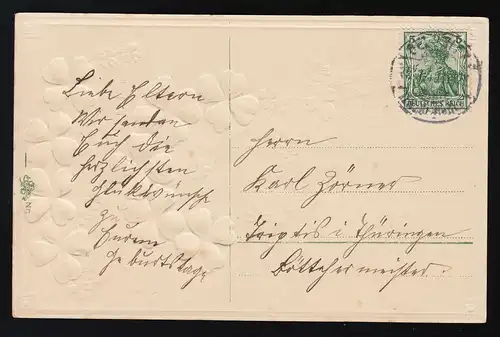 Liebe Eltern
Wir senden
Euch die
herzlichsten
Glückwünsche
zu
Eurem
Geburtstage
5 5
DEUTSCHES REICH
Herrn
Karl Zörner
Triptis i. Thüringen
Böttchermeister.